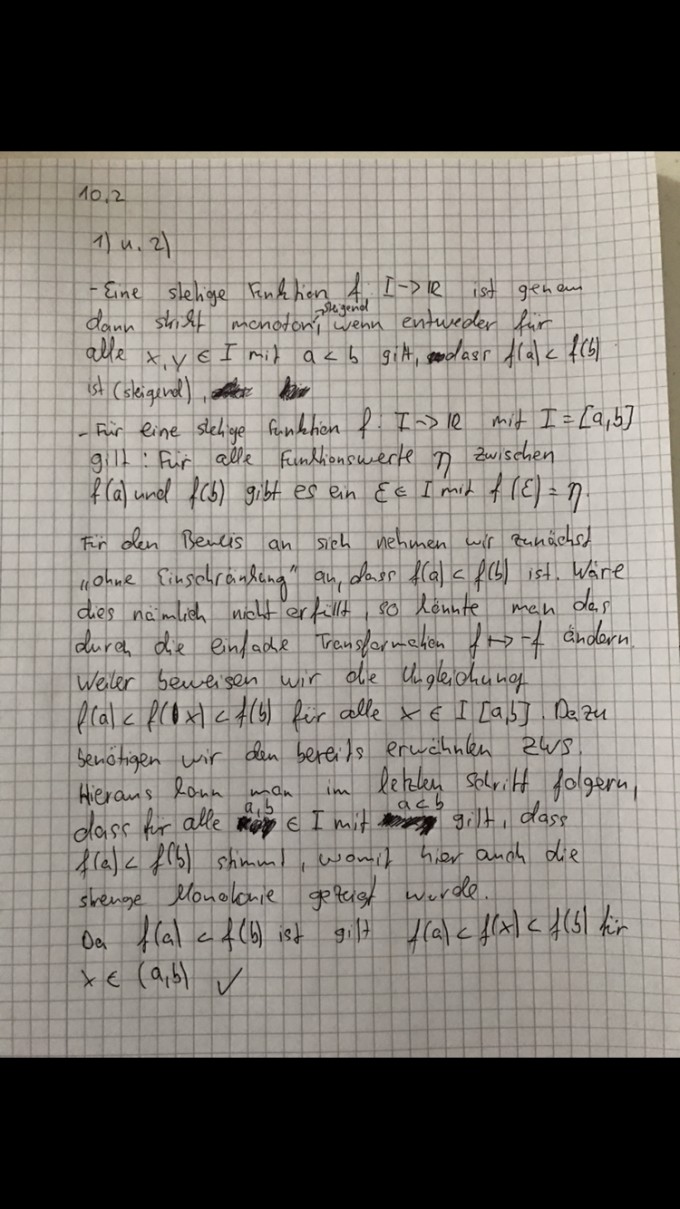 10.2
1) u. 2)
- Eine stetige Funktion f: I -> IR ist genau
dann strikt monoton, steigend wenn entweder für
alle x, y ∈ I mit a < b gilt, dass f(a) < f(b)
ist (steigend),
- Für eine stetige Funktion f: I -> IR mit I = [a,b]
gilt: Für alle Funktionswerte η zwischen
f(a) und f(b) gibt es ein ξ ∈ I mit f(ξ) = η.
Für den Beweis an sich nehmen wir zunächst
„ohne Einschränkung" an, dass f(a) < f(b) ist. Wäre
dies nämlich nicht erfüllt, so könnte man das
durch die einfache Transformation f ↦ -f ändern.
Weiter beweisen wir die Ungleichung
f(a) < f(x) < f(b) für alle x ∈ I [a,b]. Dazu
benötigen wir den bereits erwähnten ZWS.
Hieraus kann man im letzten Schritt folgern,
dass für alle a,b ∈ I mit a < b gilt, dass
f(a) < f(b) stimmt, womit hier auch die
strenge Monotonie gezeigt wurde.
Da f(a) < f(b) ist gilt f(a) < f(x) < f(b) für
x ∈ (a,b) ✓